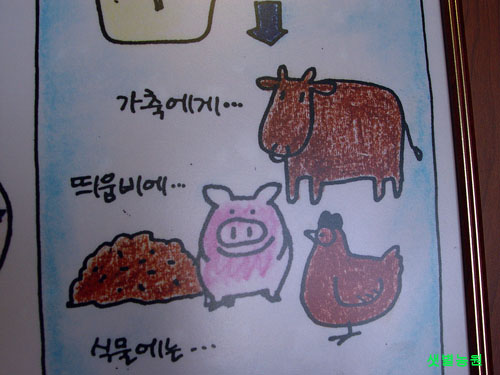 가축에게...
띄움비에...
식물에는...